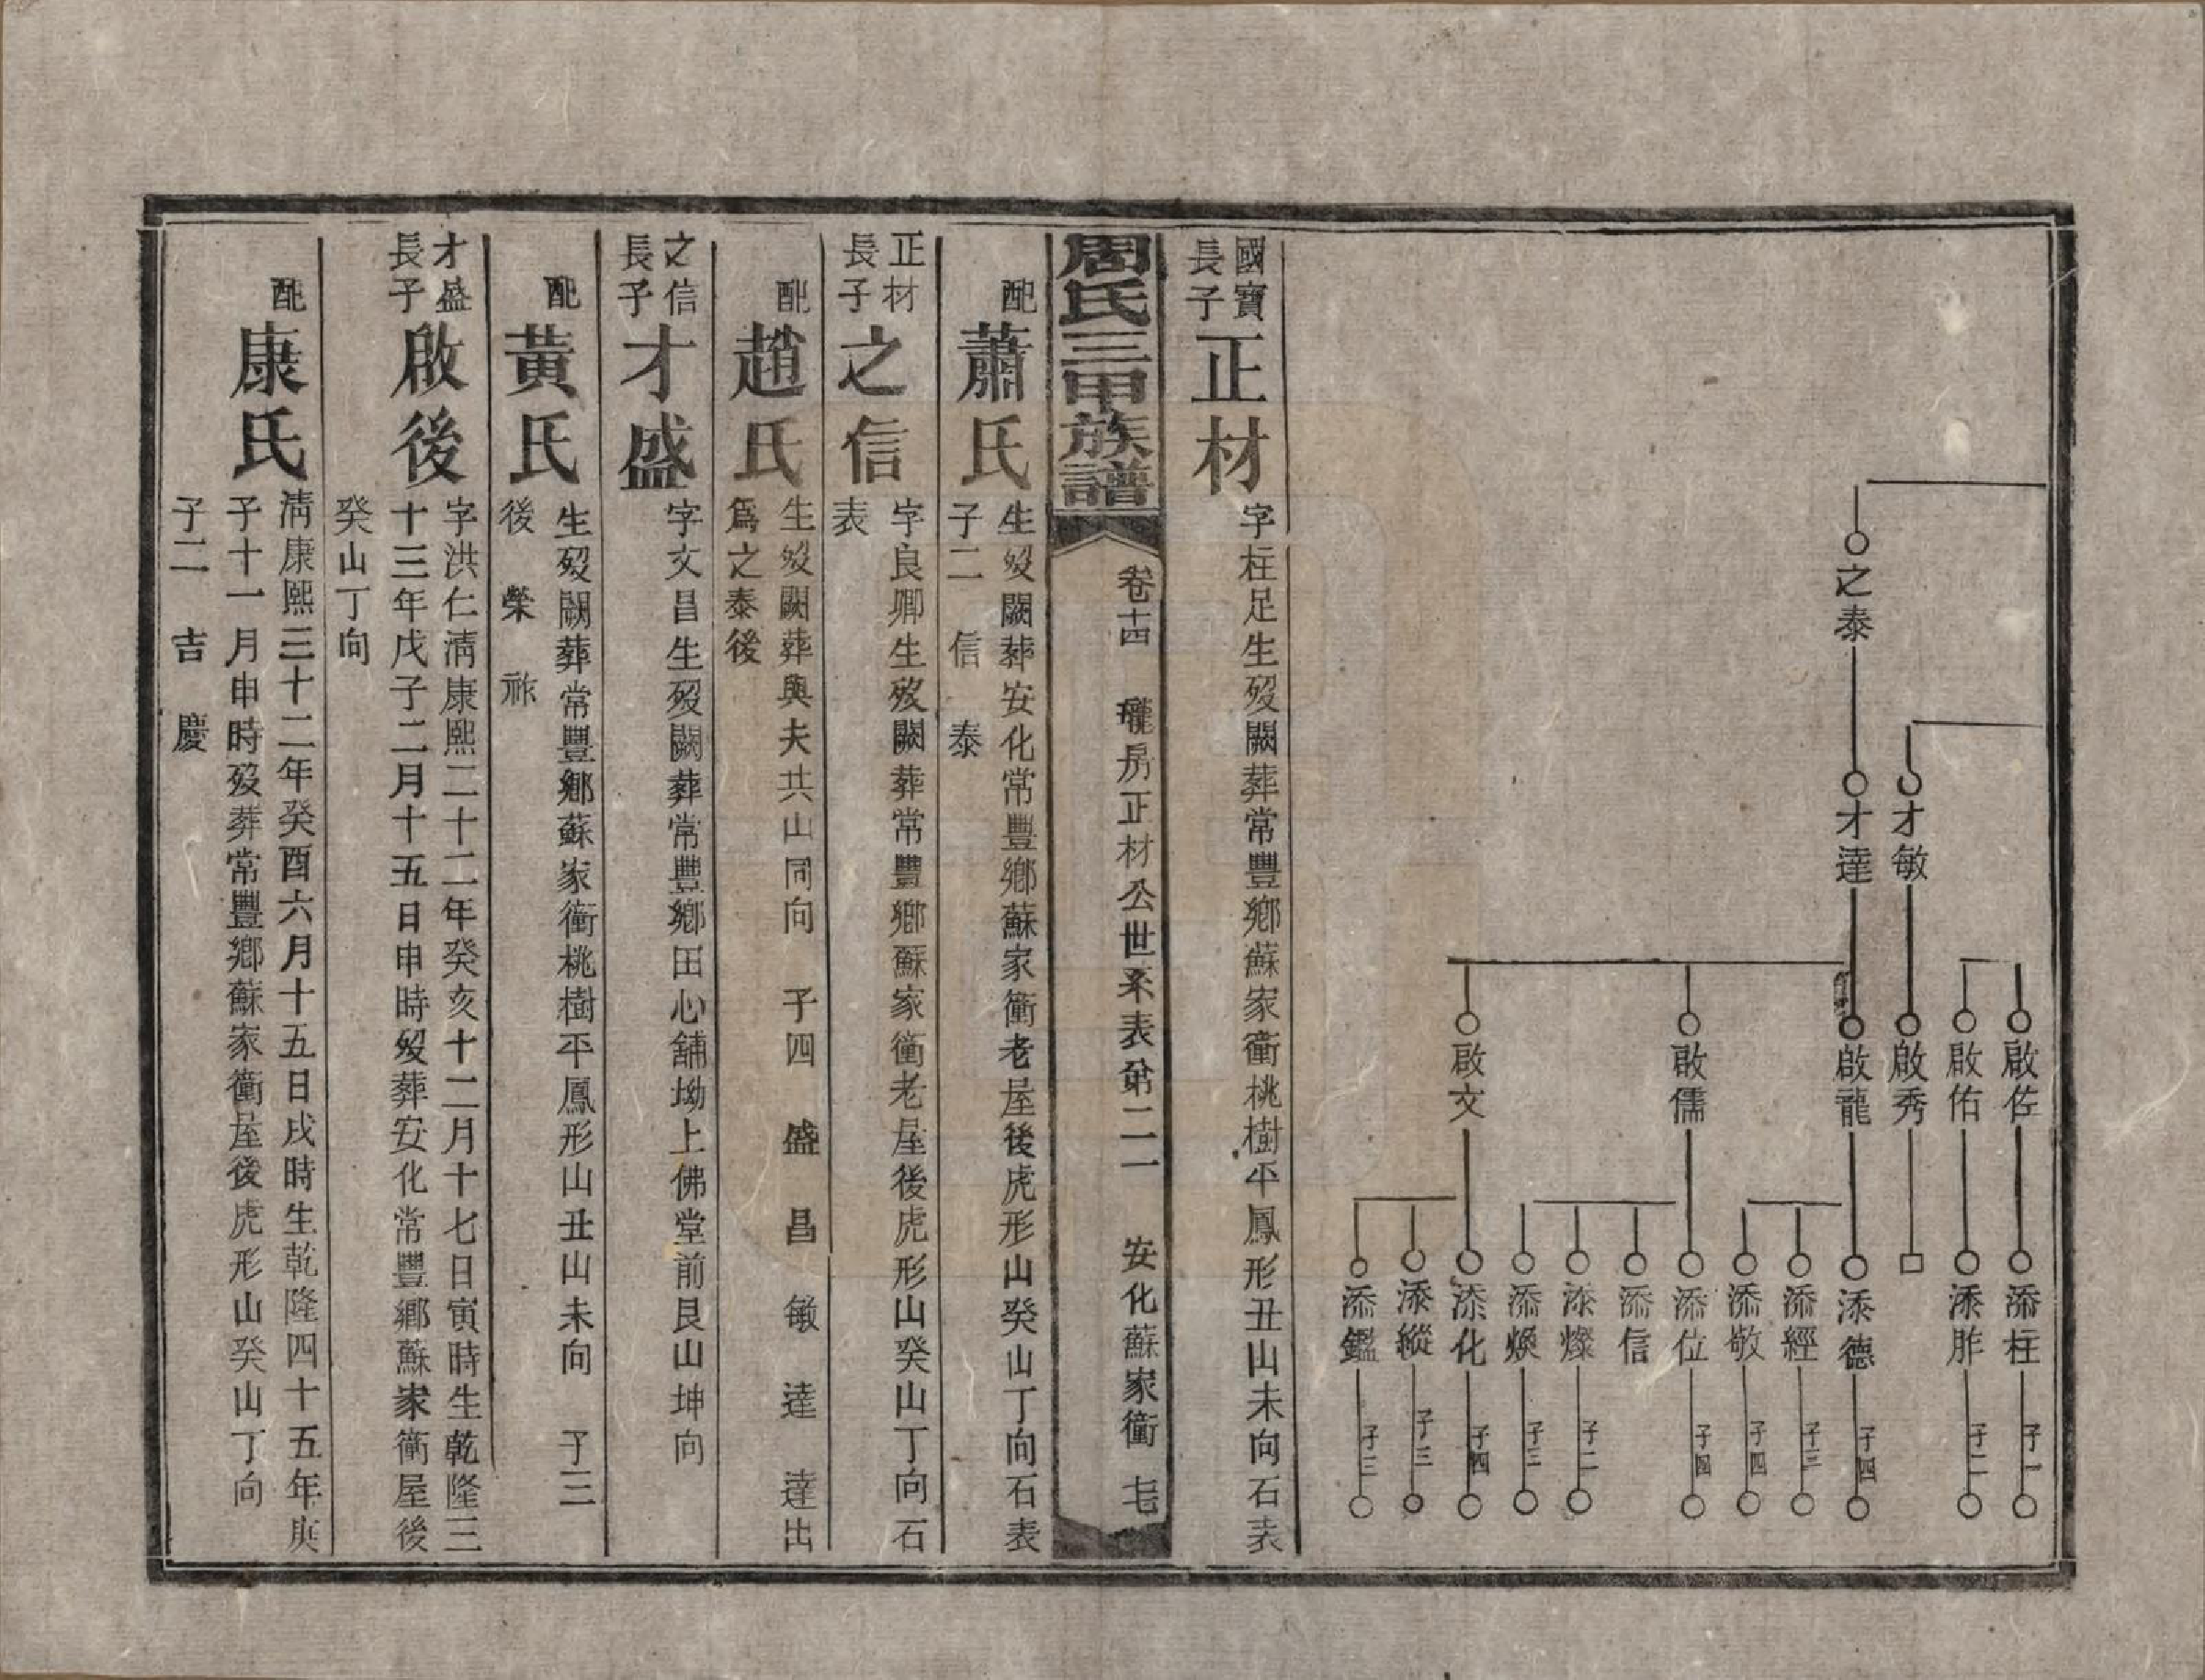 之泰
才敏
才達
啟佐
啟佑
啟秀
啟龍
啟儒
啟文
添柱
添胙
添德
添經
添敬
添位
添信
添燦
添煥
添化
添縱
添鑑
子一
子二
子四
子三
子四
子四
子二
子三
子四
子三
子三
國寶
長子
正材
字柱足生歿闕葬常豐鄉蘇家衝桃樹平鳳形丑山未向石表
周氏三甲族譜
卷十四 瓏房正材公世系表弟二一 安化蘇家衝 七
配
蕭氏
生歿闕葬安化常豐鄉蘇家衝老屋後虎形山癸山丁向石表
子二 信 泰
正材
長子
之信
字良卿生歿闕葬常豐鄉蘇家衝老屋後虎形山癸山丁向石
表
配
趙氏
生歿闕葬與夫共山同向 子四 盛 昌 敏 達 達出
爲之泰後
之信
長子
才盛
字文昌生歿闕葬常豐鄉田心舖坳上佛堂前艮山坤向
配
黃氏
生歿闕葬常豐鄉蘇家衝桃樹平鳳形山丑山未向 子三
後 榮 祚
才盛
長子
啟後
字洪仁淸康熙二十二年癸亥十二月十七日寅時生乾隆三
十三年戊子二月十五日申時歿葬安化常豐鄉蘇家衝屋後
癸山丁向
配
康氏
淸康熙三十二年癸酉六月十五日戌時生乾隆四十五年庚
子十一月申時歿葬常豐鄉蘇家衝屋後虎形山癸山丁向
子二 吉 慶